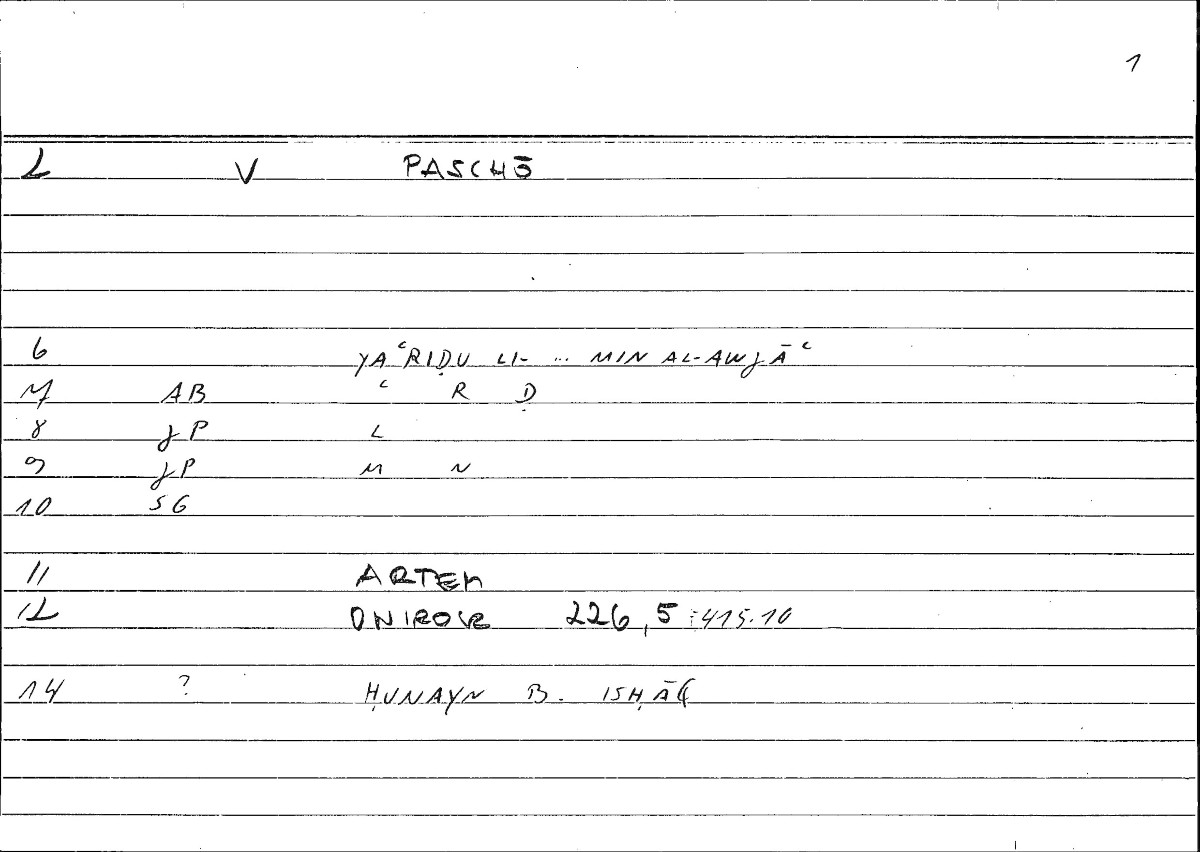 1
2 V PASCHŌ
6 YAʿRIḌU LI- ... MIN AL-AWJĀʿ
7 AB ʿ R Ḍ
8 JP L
9 JP M N
10 SG
11 ARTEM
12 ONIROCR 226,5 :415.10
14 ? ḤUNAYN B. ISḤĀQ